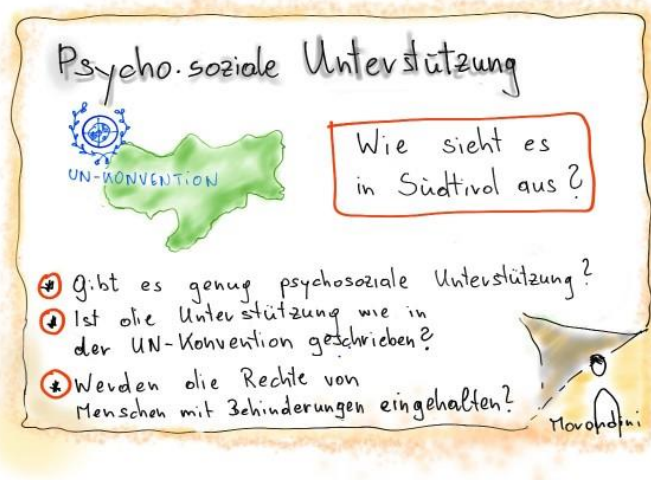 Psycho.soziale Unterstützung
UN-KONVENTION
Wie sieht es
in Südtirol aus?
Gibt es genug psychosoziale Unterstützung?
Ist die Unterstützung wie in
der UN-Konvention geschrieben?
Werden die Rechte von
Menschen mit Behinderungen eingehalten?